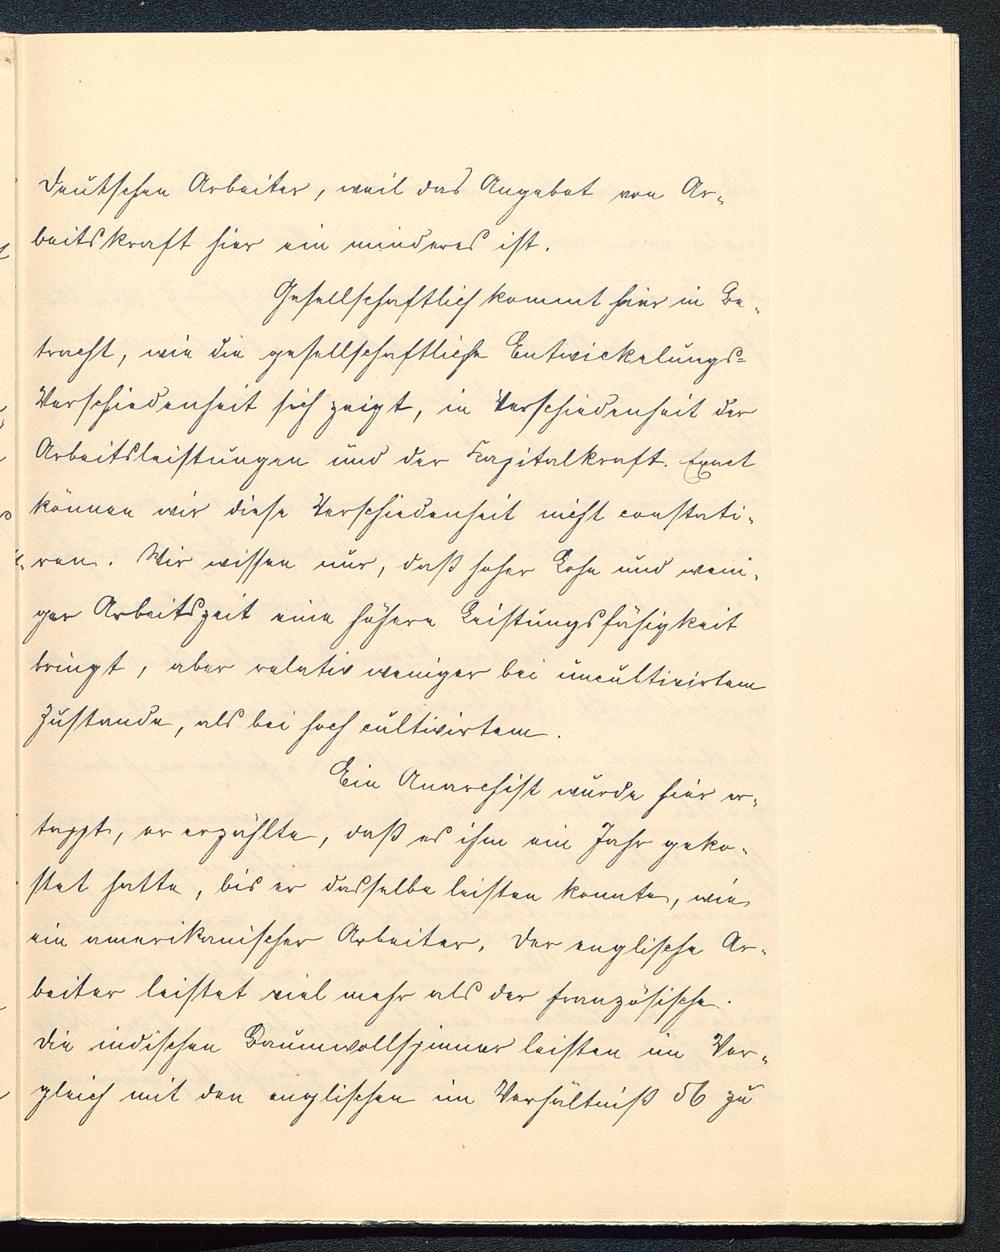 deutschen Arbeiter, weil das Angebot von Ar-
beitskraft hier ein minderes ist.
Gesellschaftlich kommt hier in Be-
tracht, wie die gesellschaftliche Entwickelungs-
Verschiedenheit sich zeigt, in Verschiedenheit der
Arbeitsleistungen und der Kapitalkraft. Exact
können wir diese Verschiedenheit nicht constati-
ren. Wir wissen nur, daß hoher Lohn und weni-
ger Arbeitszeit eine höhere Leistungsfähigkeit
bringt, aber relativ weniger bei uncultivirtem
Zustande, als bei hoch cultivirtem.
Ein Anarchist wurde hier er-
tappt, er erzählte, daß es ihm ein Jahr geko-
stet hatte, bis er dasselbe leisten konnte, wie
ein amerikanischer Arbeiter. Der englische Ar-
beiter leistet viel mehr als der französische.
Die indischen Baumwollspinner leisten im Ver-
gleich mit den englischen im Verhältniß 56 zu